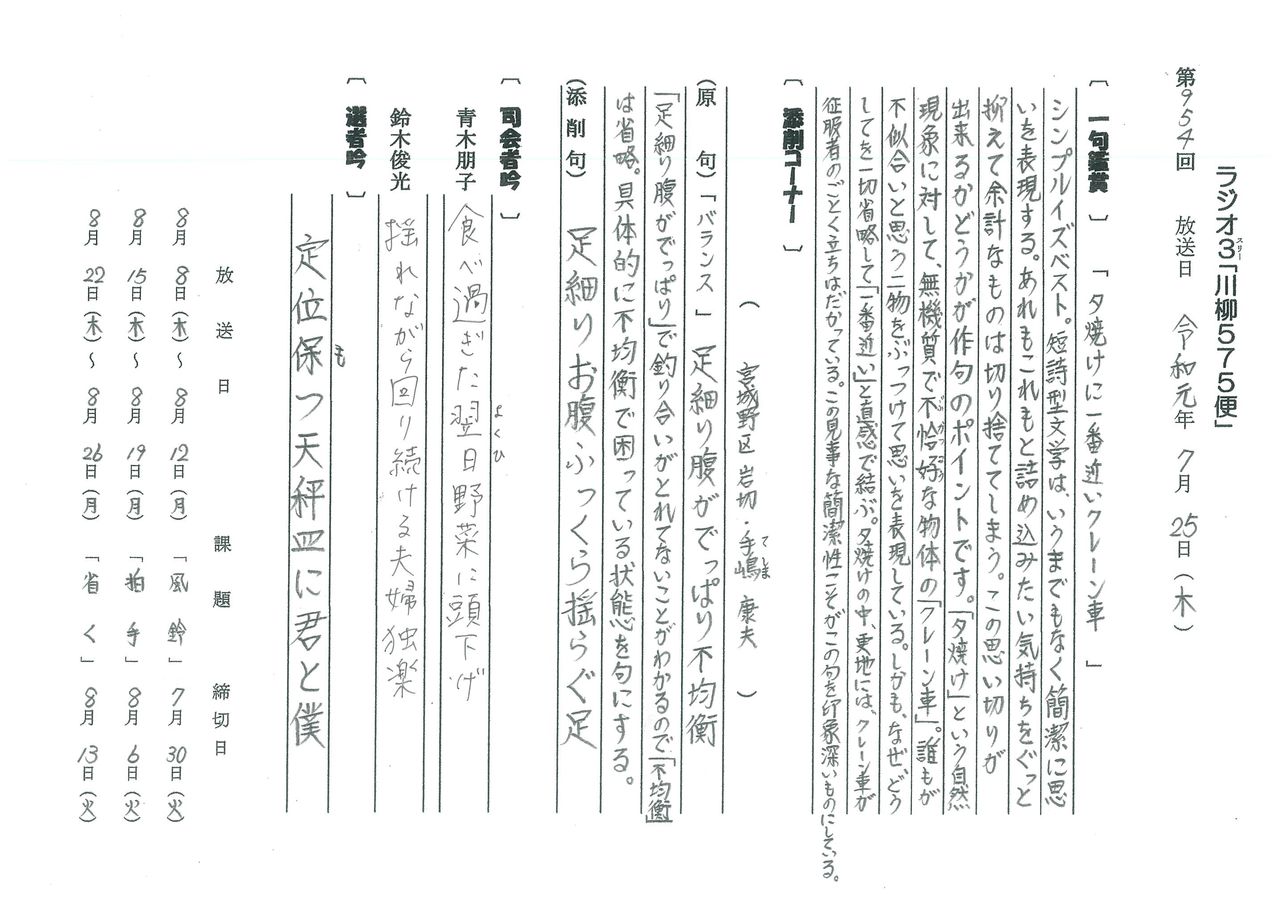 ラジオ3「川柳575便」
スリー
第954回 放送日 令和元年 7月 25日(木)
〔一句鑑賞〕 「夕焼けに一番近いクレーン車」
シンプルイズベスト。短詩型文学は、いうまでもなく簡潔に思
いを表現する。あれもこれもと詰め込みたい気持ちをぐっと
抑えて余計なものは切り捨ててしまう。この思い切りが
出来るかどうかが作句のポイントです。「夕焼け」という自然
現象に対して、無機質で不恰好な物体の「クレーン車」。誰もが
ぶかっこう
不似合いと思う二物をぶっつけて思いを表現している。しかも、なぜ、どう
してを一切省略して「一番近い」と直感で結ぶ。夕焼けの中、更地には、クレーン車が
征服者のごとく立ちはだかっている。この見事な簡潔性こそがこの句を印象深いものにしている。
〔添削コーナー〕
(宮城野区岩切・手嶋 康夫)
てしま
(原句)「バランス」 足細り腹がでっぱり不均衡
「足細り腹がでっぱり」で釣り合いがとれてないことがわかるので「不均衡」
は省略。具体的に不均衡で困っている状態を句にする。
(添削句) 足細りお腹ふっくら揺らぐ足
〔司会者吟〕
青木朋子 食べ過ぎた翌日野菜に頭下げ
よくひ
鈴木俊光 揺れながら回り続ける夫婦独楽
〔選者吟〕
定位保つ天秤皿に君と僕
も
放送日 課題 締切日
8月 8日(木)～8月 12日(月) 「風鈴」 7月 30日(火)
8月 15日(木)～8月 19日(月) 「拍手」 8月 6日(火)
8月 22日(木)～8月 26日(月) 「省く」 8月 13日(火)